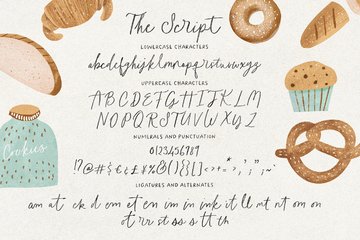 The Script
LOWERCASE CHARACTERS
abcdefghijklmnopqrstuvwxyz
UPPERCASE CHARACTERS
ABCDEFGHIJKLM
NOPQRSTUVWXYZ
NUMERALS AND PUNCTUATION
0123456789
!?@#€¢£¥%&()[]{}<>+=
Cookies
LIGATURES AND ALTERNATES
am at ck d em et en im in ink it ll mt nt om on
ot rr st ss s tt th